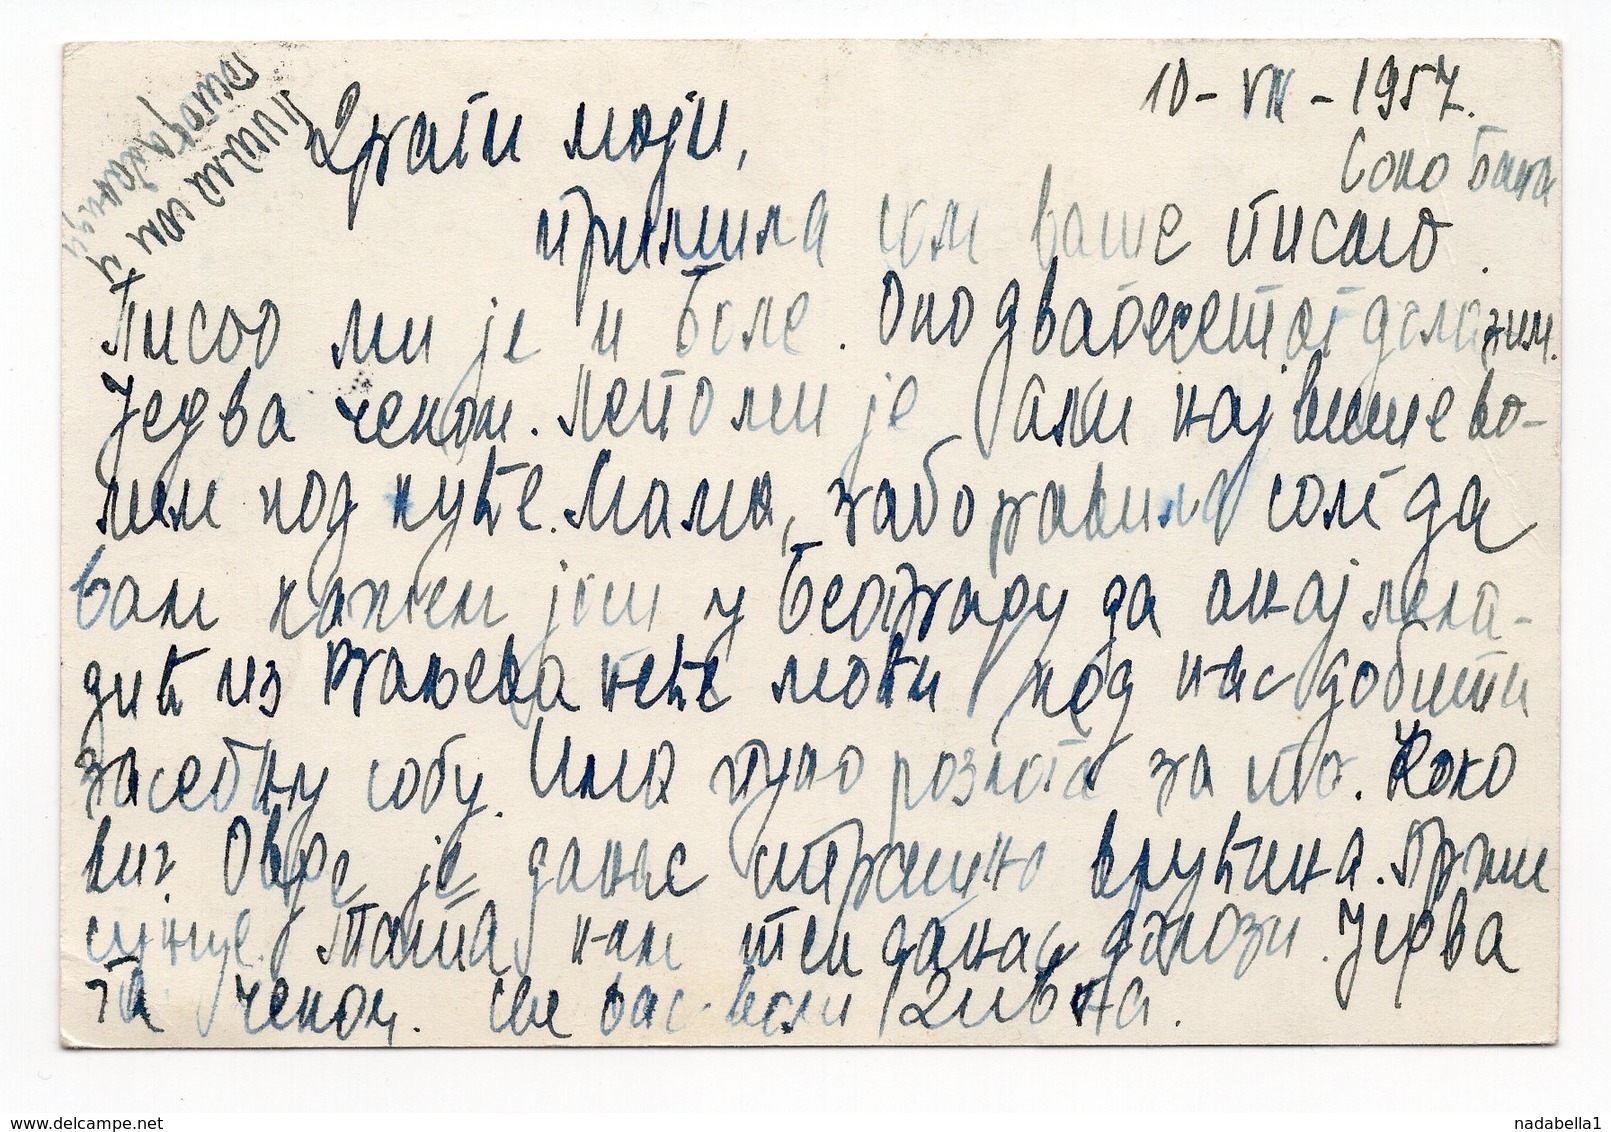 10-VII-1957.
Соко Бања
Драги моји,
примила сам ваше писмо.
Писао ми је и Боле. Око двадесетог долазим.
Једва чекам. Лепо ми је али највише во-
лим код куће. Мама, заборавила сам да
вам кажем још у Београду да онај лека-
дић из Краљева неће моћи код нас добити
засебну собу. Има пуно разлога за то. Како
ви? Овде је данас страшно врућина. Пржи
сунце. Тата нам тек данас долази. Једва
га чекам. Све вас воли Живка.
Писала сам у
delcampe.net
nadabella1